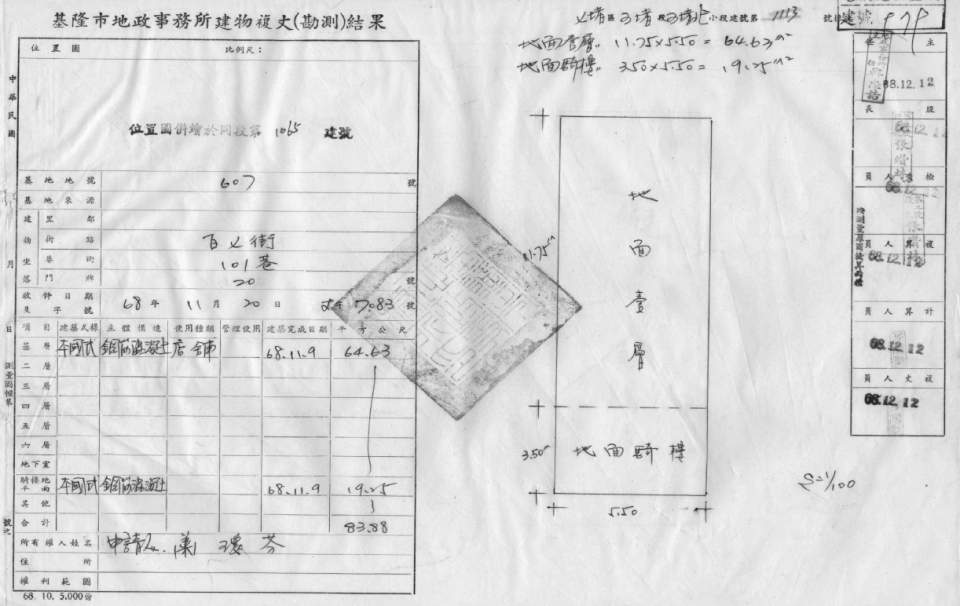 基隆市地政事務所建物複丈(勘測)結果
段建號第 1113 號 建號
地面壹層 11.75×5.50 = 64.63 m²
地面騎樓 3.50×5.50 = 19.25 m²
位置圖 比例尺：
中華民國 月 日
位置圖併繪於同段第 1065 建號
基地地號 607 號
基地來源
建物坐落
里鄰
街路 百 街
巷衖 101巷
門牌 20 號
收件日期 68年 11月 20日 7083號
項目 建築式樣 主體構造 使用種類 管理使用 建築完成日期 平方公尺
基層 本國式 鋼筋混凝土 店舖 68.11.9 64.63
二層
三層
四層
五層
六層
地下室
騎樓地平面 本國式 鋼筋混凝土 68.11.9 19.25
其他
合計 83.88
所有權人姓名 申請人
住所
權利範圍
68. 10. 5,000份
地面壹層
11.75 m
地面騎樓
3.50 m
5.50
S=1/100
主
68.12.12
股長
68.12.12
檢查人員
68.12.12
68.12.12
計算人員
68.12.12
複丈人員
68.12.12